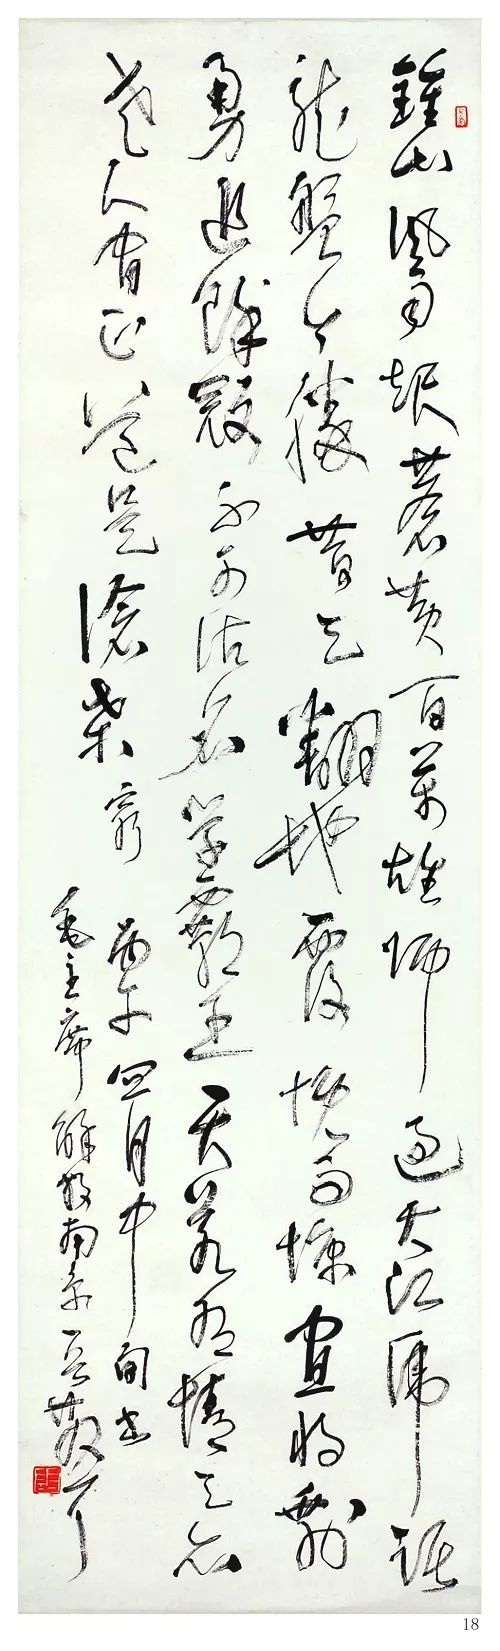 鍾山風雨起蒼黄百萬雄師過大江虎踞
龍盤今勝昔天翻地覆慨而慷宜將剩
勇追餘寇不可沽名學霸王天若有情天亦
老人間正道是滄桑 窮
丙午四月中旬書
毛主席解放南京一首 散耳
18